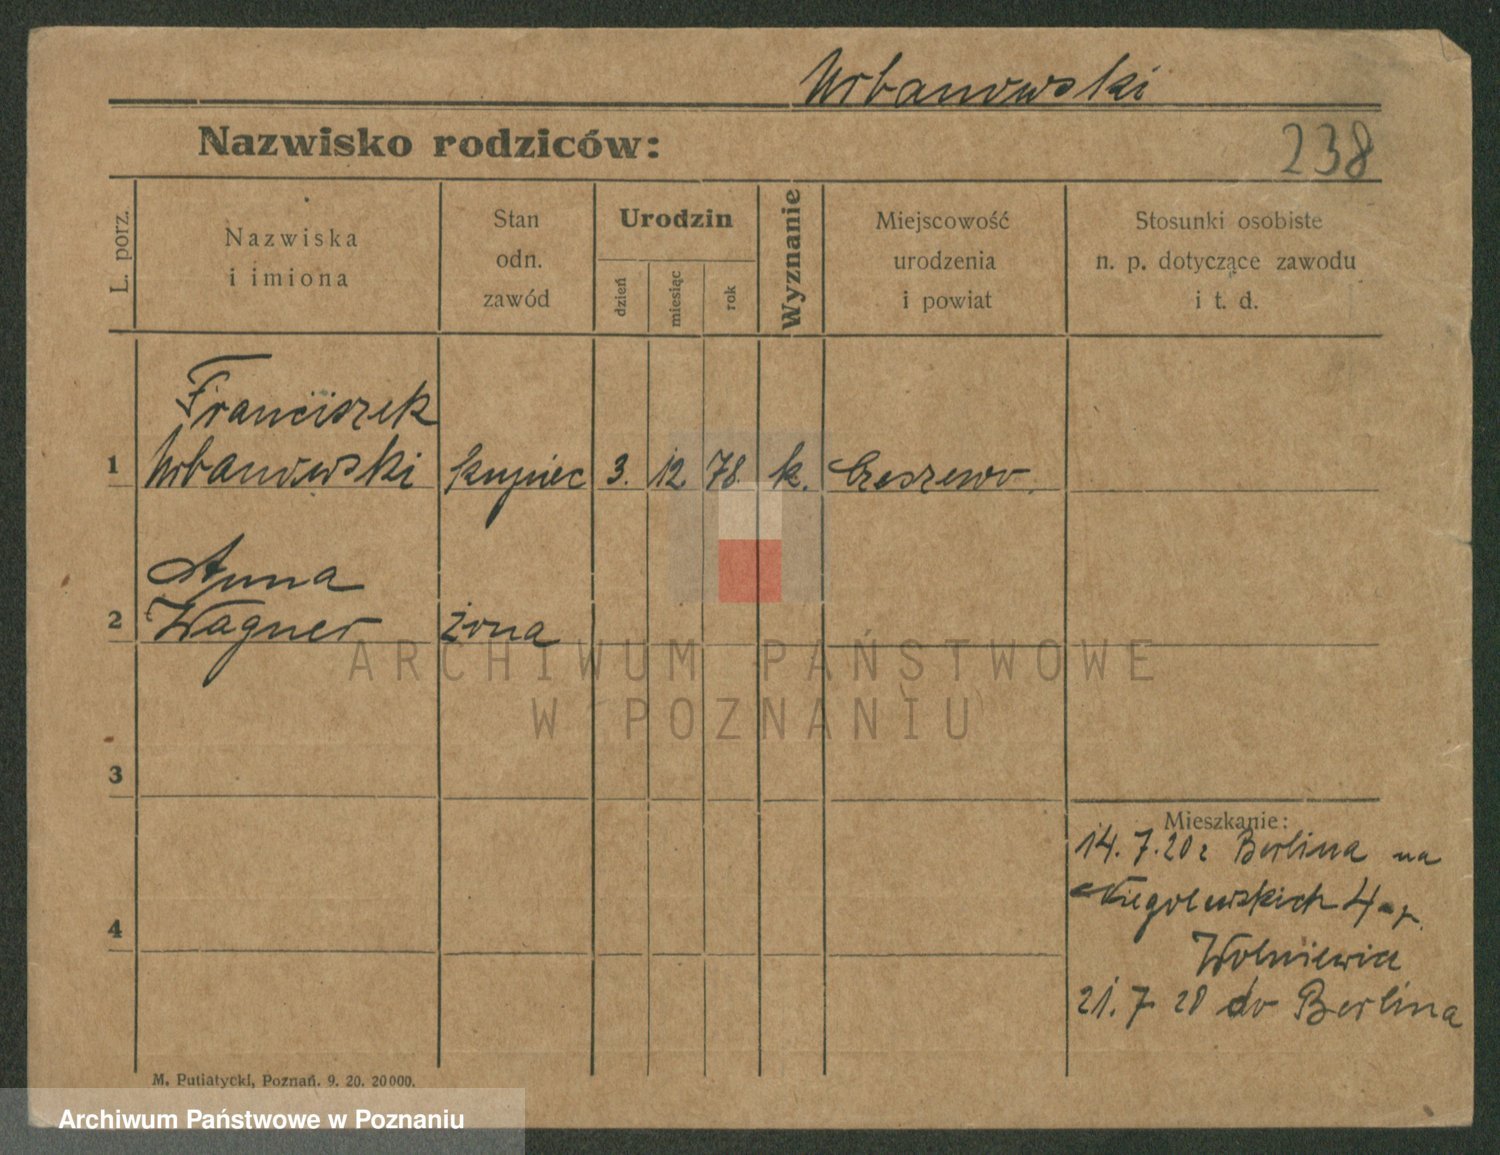 Urbanowski
Nazwisko rodziców:
238
L. porz.
Nazwiska
i imiona
Stan
odn.
zawód
Urodzin
dzień
miesiąc
rok
Wyznanie
Miejscowość
urodzenia
i powiat
Stosunki osobiste
n. p. dotyczące zawodu
i t. d.
Franciszek
1 Urbanowski kupiec 3. 12 78. k. Czeszewo.
Anna
2 Wagner żona
ARCHIWUM PAŃSTWOWE
W POZNANIU
3
Mieszkanie:
14.7.20 z Berlina na
Niegolewskich 4
4
21.7 20 do Berlina
M. Putiatycki, Poznań. 9. 20. 20000.
Archiwum Państwowe w Poznaniu